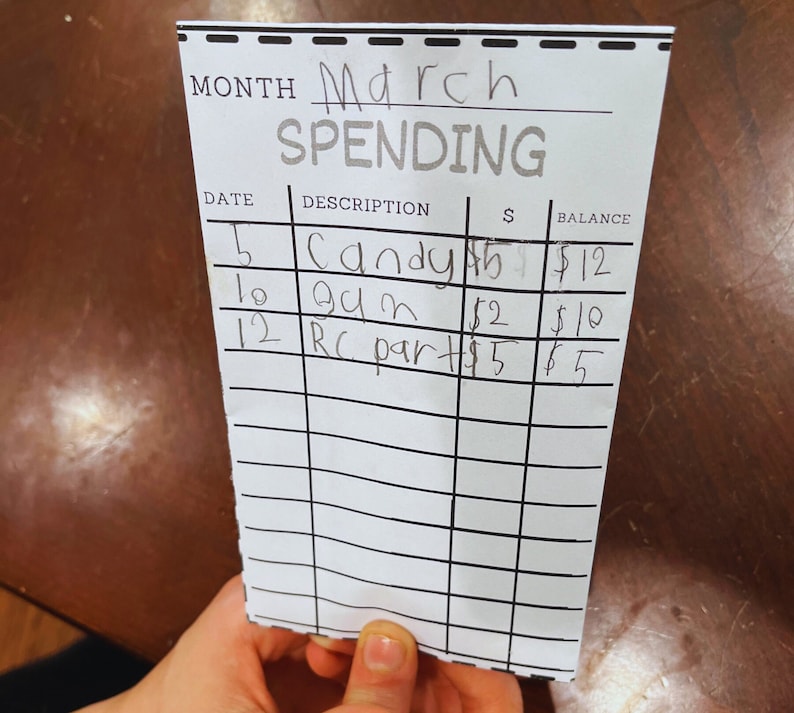 MONTH March
SPENDING
DATE DESCRIPTION $ BALANCE
5 Candy $5 $12
10 gun $2 $10
12 RC part $5 $5